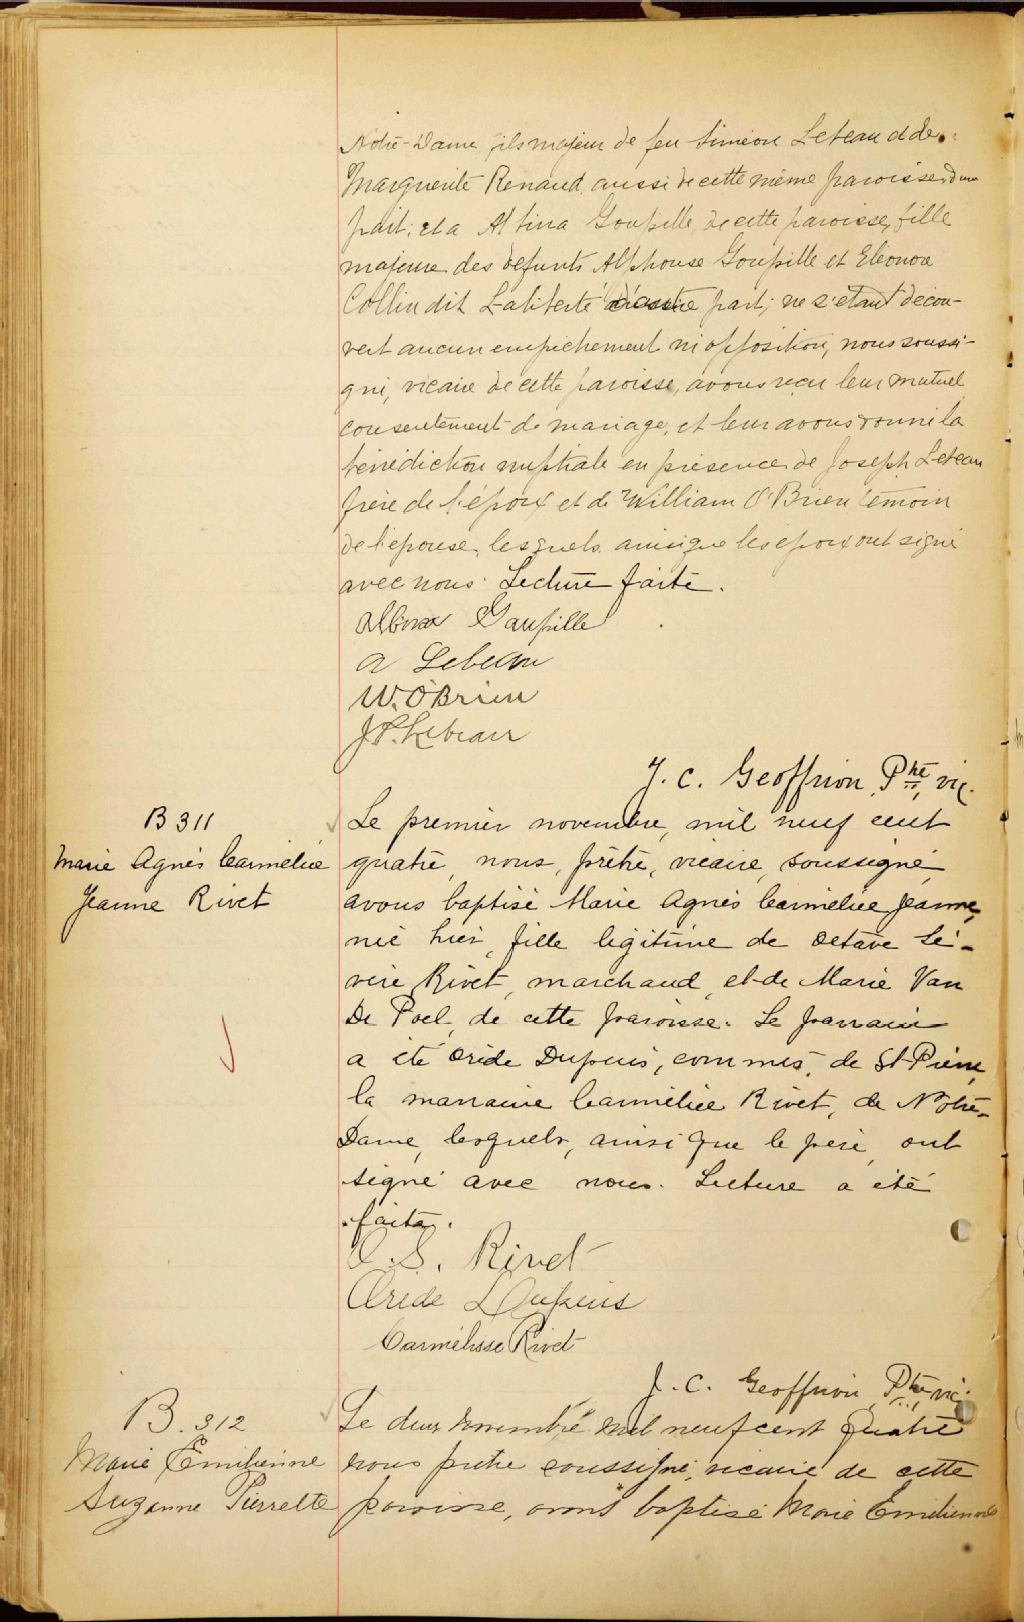 Notre-Dame, fils majeur de feu Siméon Lebeau et de
Marguerite Renaud, aussi de cette même paroisse, d'une
part; et a Albina Goupille, de cette paroisse, fille
majeure des défunts Alphonse Goupille et Eléonore
Collin dit Laliberté d'autre part; ne s'étant décou-
vert aucun empêchement ni opposition, nous soussi-
gné, vicaire de cette paroisse, avons reçu leur mutuel
consentement de mariage, et leur avons donné la
bénédiction nuptiale en présence de Joseph Lebeau
frère de l'époux et de William O'Brien témoin
de l'épouse, lesquels ainsi que les époux ont signé
avec nous. Lecture faite.
Albina Goupille
A Lebeau
W. O'Brien
J. Lebeau
J. C. Geoffrion, Ptre, vic.
B 311
Marie Agnès Carmélice
Jeanne Rivet
Le premier novembre, mil neuf cent
quatre, nous, prêtre, vicaire, soussigné,
avons baptisé Marie Agnès Carmélice Jeanne,
née hier, fille légitime de Octave Sé-
vère Rivet, marchand, et de Marie Van
De Poel, de cette paroisse. Le parrain
a été Oride Dupuis, commis, de St-Pierre,
la marraine Carmélice Rivet, de Notre-
Dame, lesquels, ainsi que le père, ont
signé avec nous. Lecture a été
faite.
O. S. Rivet
Oride Dupuis
Carmélisse Rivet
J. C. Geoffrion, Ptre, vic.
B. 312
Marie Emilienne
Suzanne Pierrette
Le deux novembre mil neuf cent quatre
nous prêtre soussigné, vicaire de cette
paroisse, avons baptisé Marie Emilienne